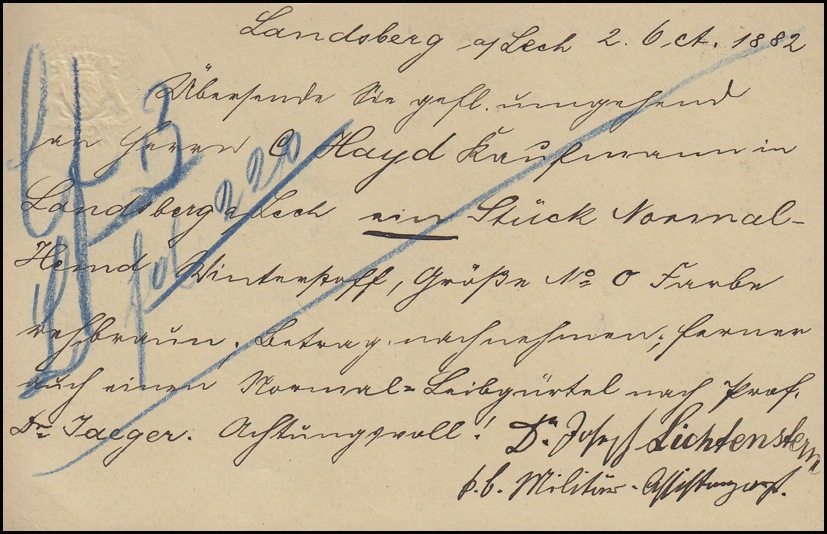 Landsberg a/Lech 2. Oct. 1882
Übersende Sie gefl. umgehend
an Herrn C Hayd Kaufmann in
Landsberg a/Lech ein Stück Normal-
Hemd Winterstoff, Größe No 0 Farbe
rehbraun. Betrag nachnehmen; ferner
auch einen Normal=Leibgürtel nach Prof.
Dr. Jaeger. Achtungsvoll! Dr. Josef Lichtenstern
Militär-Assistenzarzt.
3
fol 220